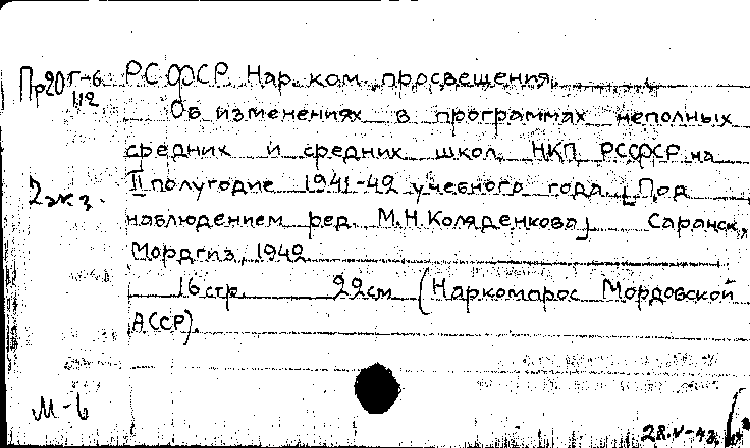 Пр20 Г-6 РСФСР. Нар. ком. просвещения.
112
Об изменениях в программах неполных
средних и средних школ НКП РСФСР на
2 экз. II полугодие 1941-42 учебного года. [Под
наблюдением ред. М.Н. Коляденкова] Саранск,
Мордгиз, 1942
16 стр. 22 см (Наркомпрос Мордовской
АССР).
М-6
28.V-42